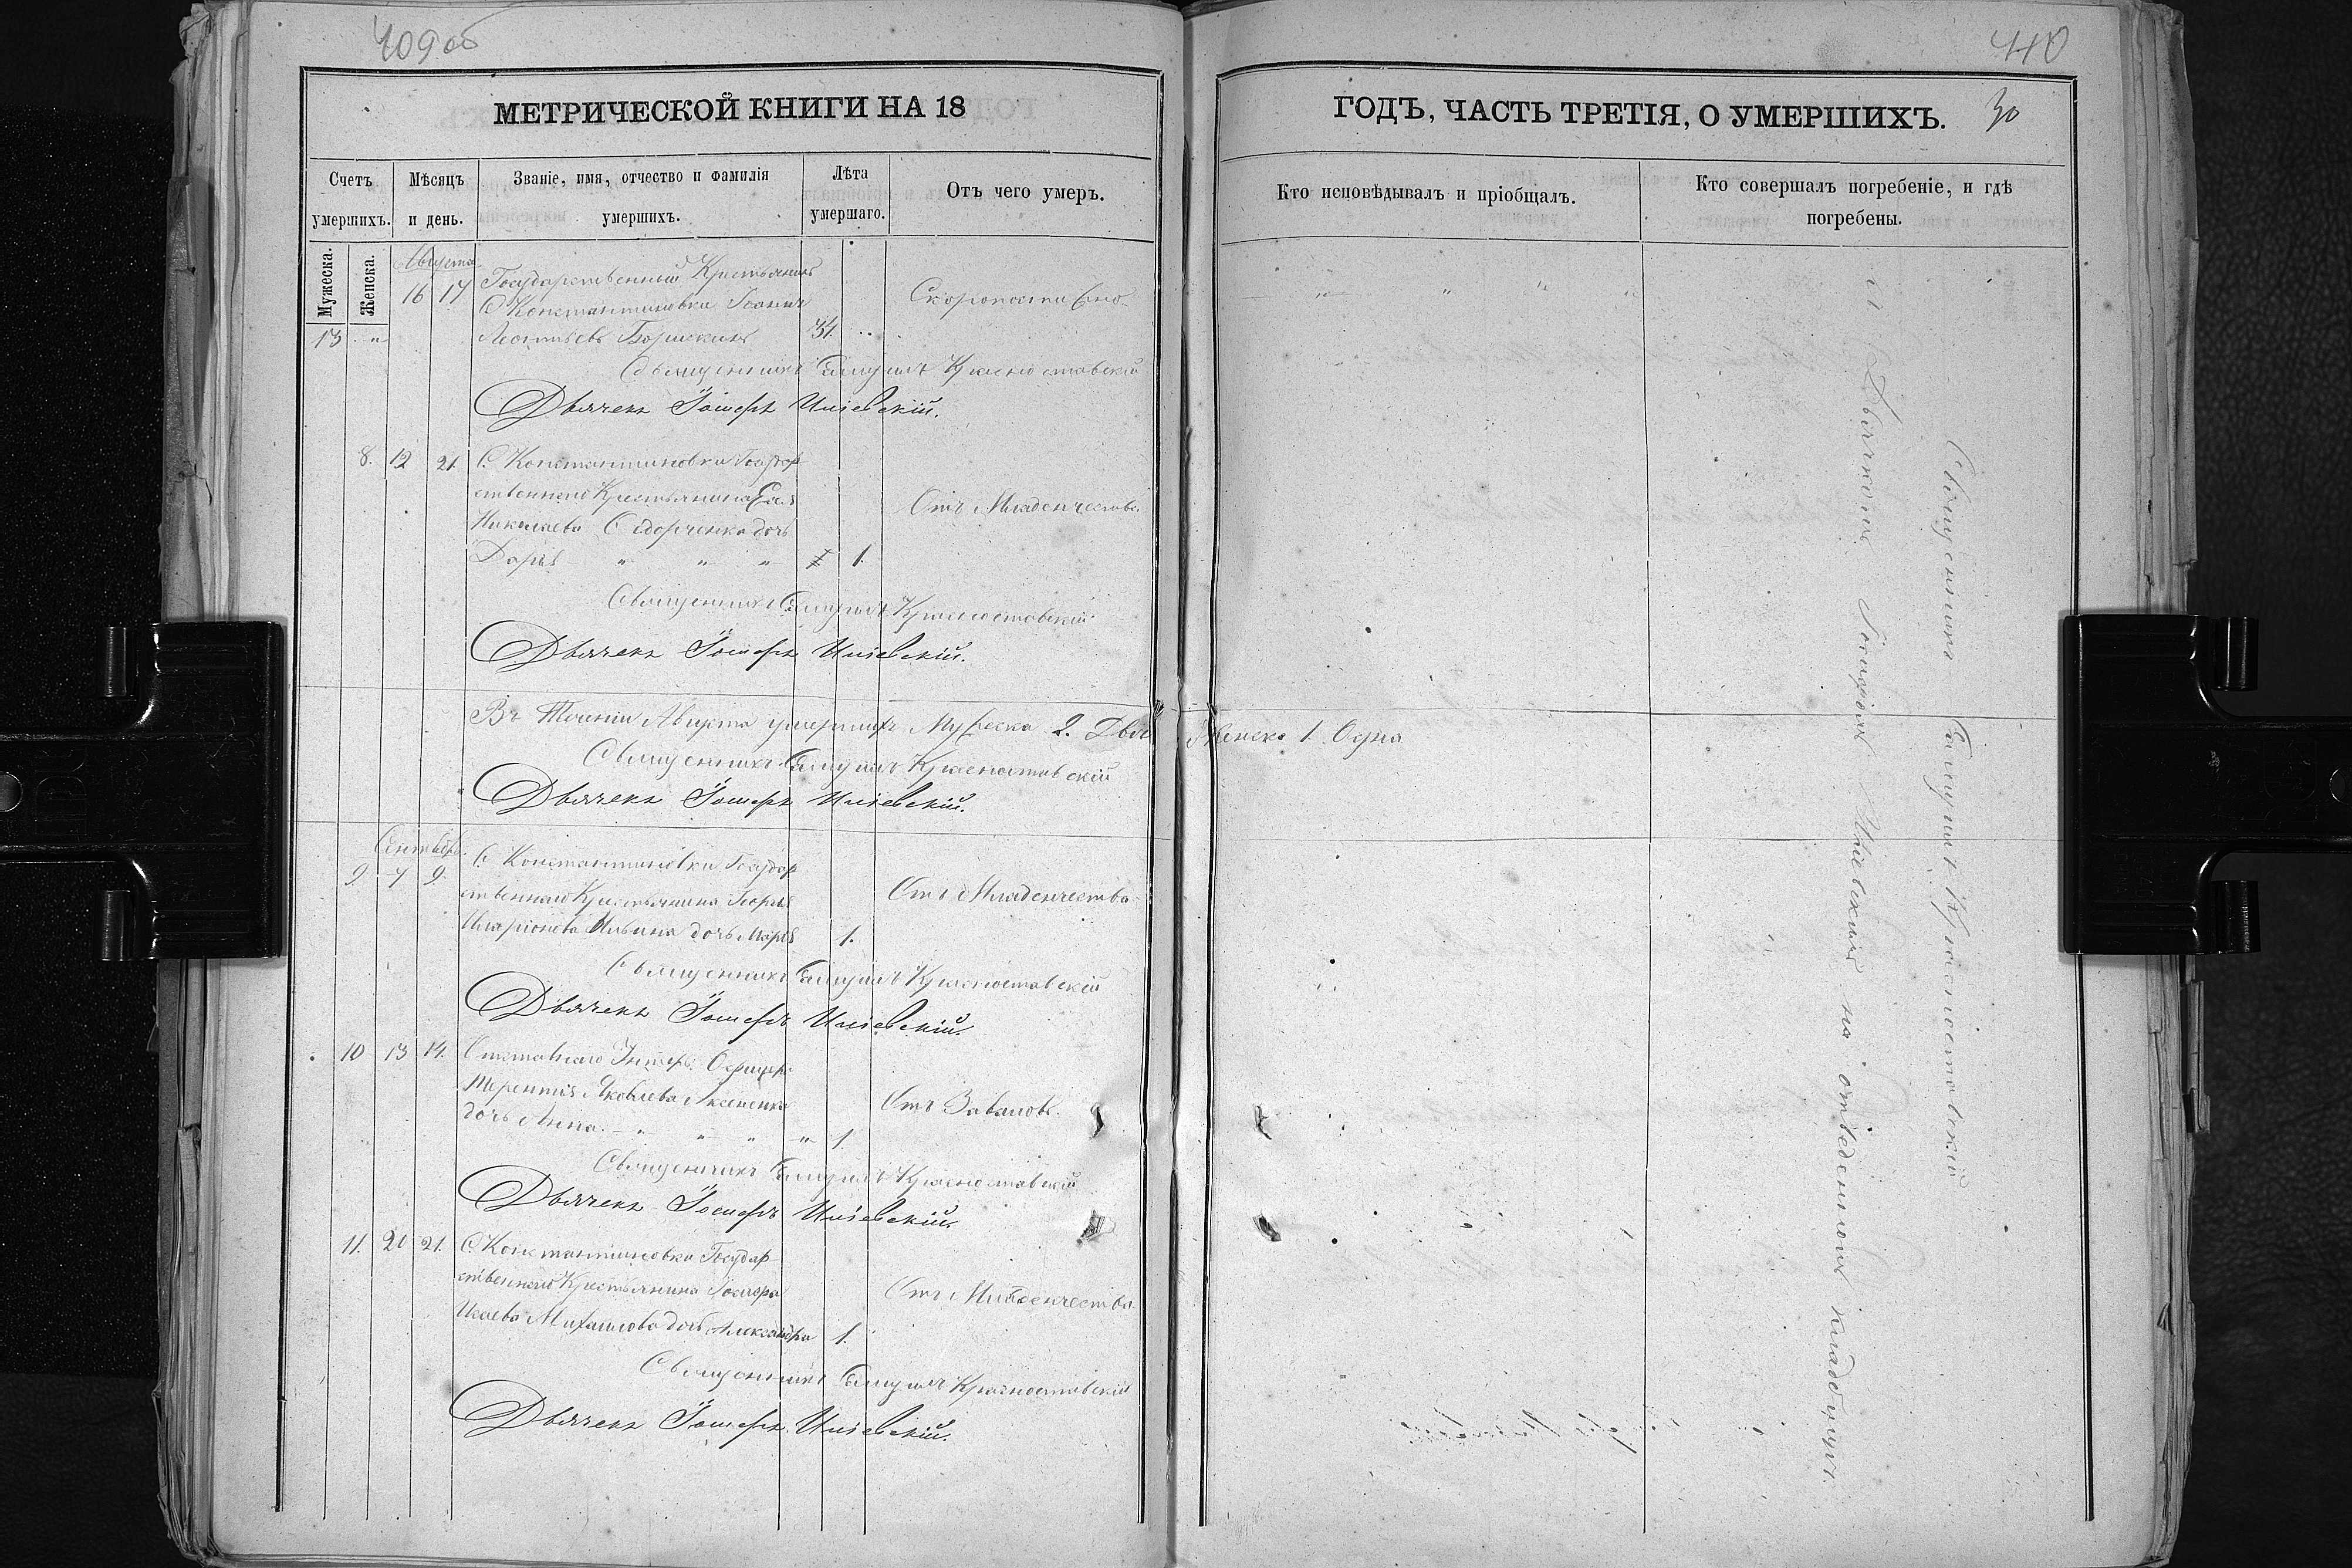 409 об
МЕТРИЧЕСКОЙ КНИГИ НА 18
Счетъ умершихъ.
Мужеска.
Женска.
Мѣсяцъ и день.
Званіе, имя, отчество и фамилія умершихъ.
Лѣта умершаго.
Отъ чего умер.
Августа
13 " 16 17 Государственный Крестьянинъ
С. Константиновки Іоаннъ
Леонтьевъ 34.
Скоропостижно
Священникъ Красноставскій
Дьячекъ Іосифъ
8. 12 21. С. Константиновки Государ
ственнаго Крестьянина
Николаева Сидорченка дочь
Дарья " " " 1.
Отъ Младенчества
Священникъ Красноставскій
Дьячекъ Іосифъ
Въ Теченіи Августа умершихъ Мужеска 2. Два Женска 1. Одна
Священникъ Красноставскій
Дьячекъ Іосифъ
Сентября
9. 7 9. С. Константиновки Государ
ственнаго Крестьянина Георгія
Иларіонова Ильина дочь Марія 1.
Отъ Младенчества
Священникъ Красноставскій
Дьячекъ Іосифъ
10 13 14. Отставнаго Унтеръ Офицера
Терентія Яковлева
дочь Анна " " " " 1.
Отъ Заваловъ
Священникъ Красноставскій
Дьячекъ Іосифъ
11. 20 21. С. Константиновки Государ
ственнаго Крестьянина Іосифа
Исаева Михайлова дочь Александра 1.
Отъ Младенчества
Священникъ Красноставскій
Дьячекъ Іосифъ
410
ГОДЪ, ЧАСТЬ ТРЕТІЯ, О УМЕРШИХЪ.
30
Кто исповѣдывалъ и пріобщалъ.
Кто совершалъ погребеніе, и гдѣ погребены.
" " " "
Священникъ Красноставскій
и Дьячкомъ Іосифомъ на отведенномъ кладбищѣ.